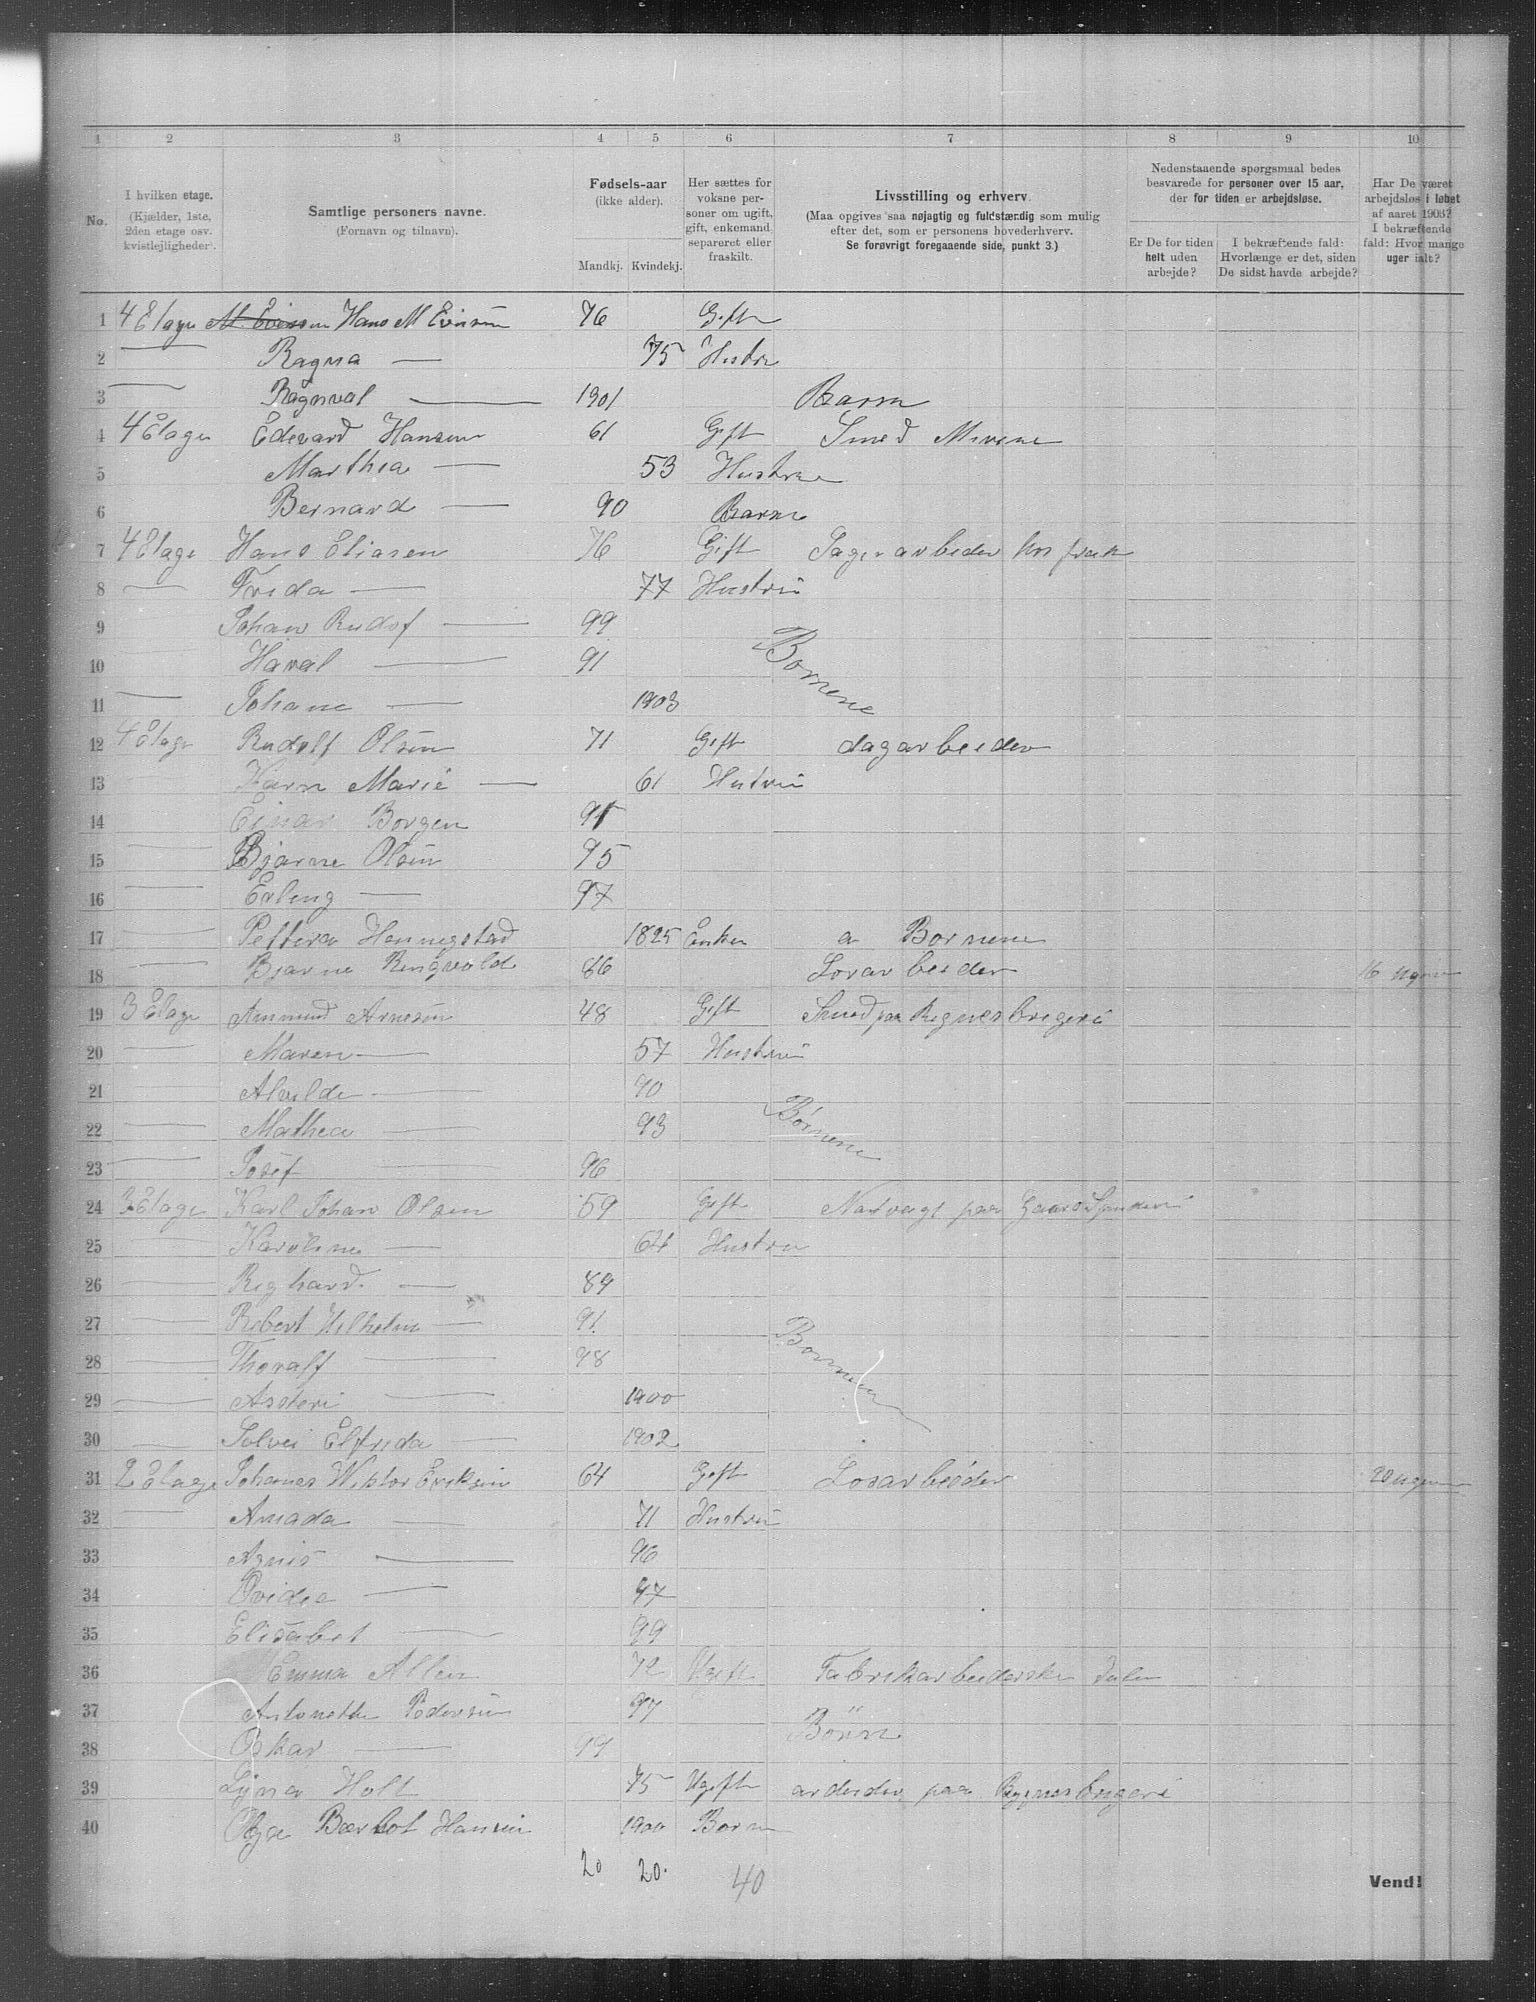 1 2 3 4 5 6 7 8 9 10
No. I hvilken etage. (Kjælder, 1ste, 2den etage osv. kvistlejligheder). Samtlige personers navne. (Fornavn og tilnavn). Fødsels-aar (ikke alder). Mandkj. Kvindekj. Her sættes for voksne personer om ugift, gift, enkemand, separeret eller fraskilt. Livsstilling og erhverv. (Maa opgives saa nøjagtig og fuldstændig som mulig efter det, som er personens hovederhverv. Se forøvrigt foregaaende side, punkt 3.) Nedenstaaende spørgsmaal bedes besvarede for personer over 15 aar, der for tiden er arbejdsløse. Er De for tiden helt uden arbejde? I bekræftende fald: Hvorlænge er det, siden De sidst havde arbejde? Har De været arbejdsløs i løbet af aaret 1903? I bekræftende fald: Hvor mange uger ialt?
1 4 Etage Hans M 76 Gift
2 — Ragna — 75 Hustru
3 — Ragnval — 1901 Barn
4 4 Etage Edevard Hansen 61 Gift Smed
5 Marthea — 53 Hustru
6 Bernard — 90 Barn
7 4 Etage Hans Eliasen 76 Gift
8 — Frida — 77 Hustru
9 Johan Rudof — 99
10 Haral — 91 Bornene
11 — Johane — 1903
12 4 Etage Rudolf Olsen 71 Gift dagarbeider
13 Karn Marie — 61 Hustru
14 Einar Borgen
15 — Bjarne Olsen 95
16 — Erling — 97
17 — Hennigstad 1825 Enke a Bornene
18 — Bjarne Ringvold 86 Losarbeider 16 uger
19 3 Etage Ammund Arnesen 48 Gift Smed paa
20 — Maren — 57 Hustru
21 — Alvilde — 90
22 — Mathea — 93 Børnene
23 — Josef — 96
24 3 Etage Karl Johan Olsen 59 Gift Natvagt paa
25 — Karoline — 64 Hustru
26 — Righard — 89
27 — Robert Vilhelm — 91
28 — Thoralf — 98 Bornene
29 — — 1900
30 — Solvei Elfrida — 1902
31 2 Etage Johanes Viktor Eriksen 64 Gift Losarbeider 20 uger
32 — Amada — 71 Hustru
33 Agnis — 96
34 Ovidia — 97
35 Elisabet — 99
36 Emma Allen 72 Ugift Fabrikarbeiderske
37 Antonette Pedersen 97
38 Oskar — 99 Børn
39 Holt 75 Ugift paa
40 Olga Hansen 1900 Born
20 20. 40
Vend!